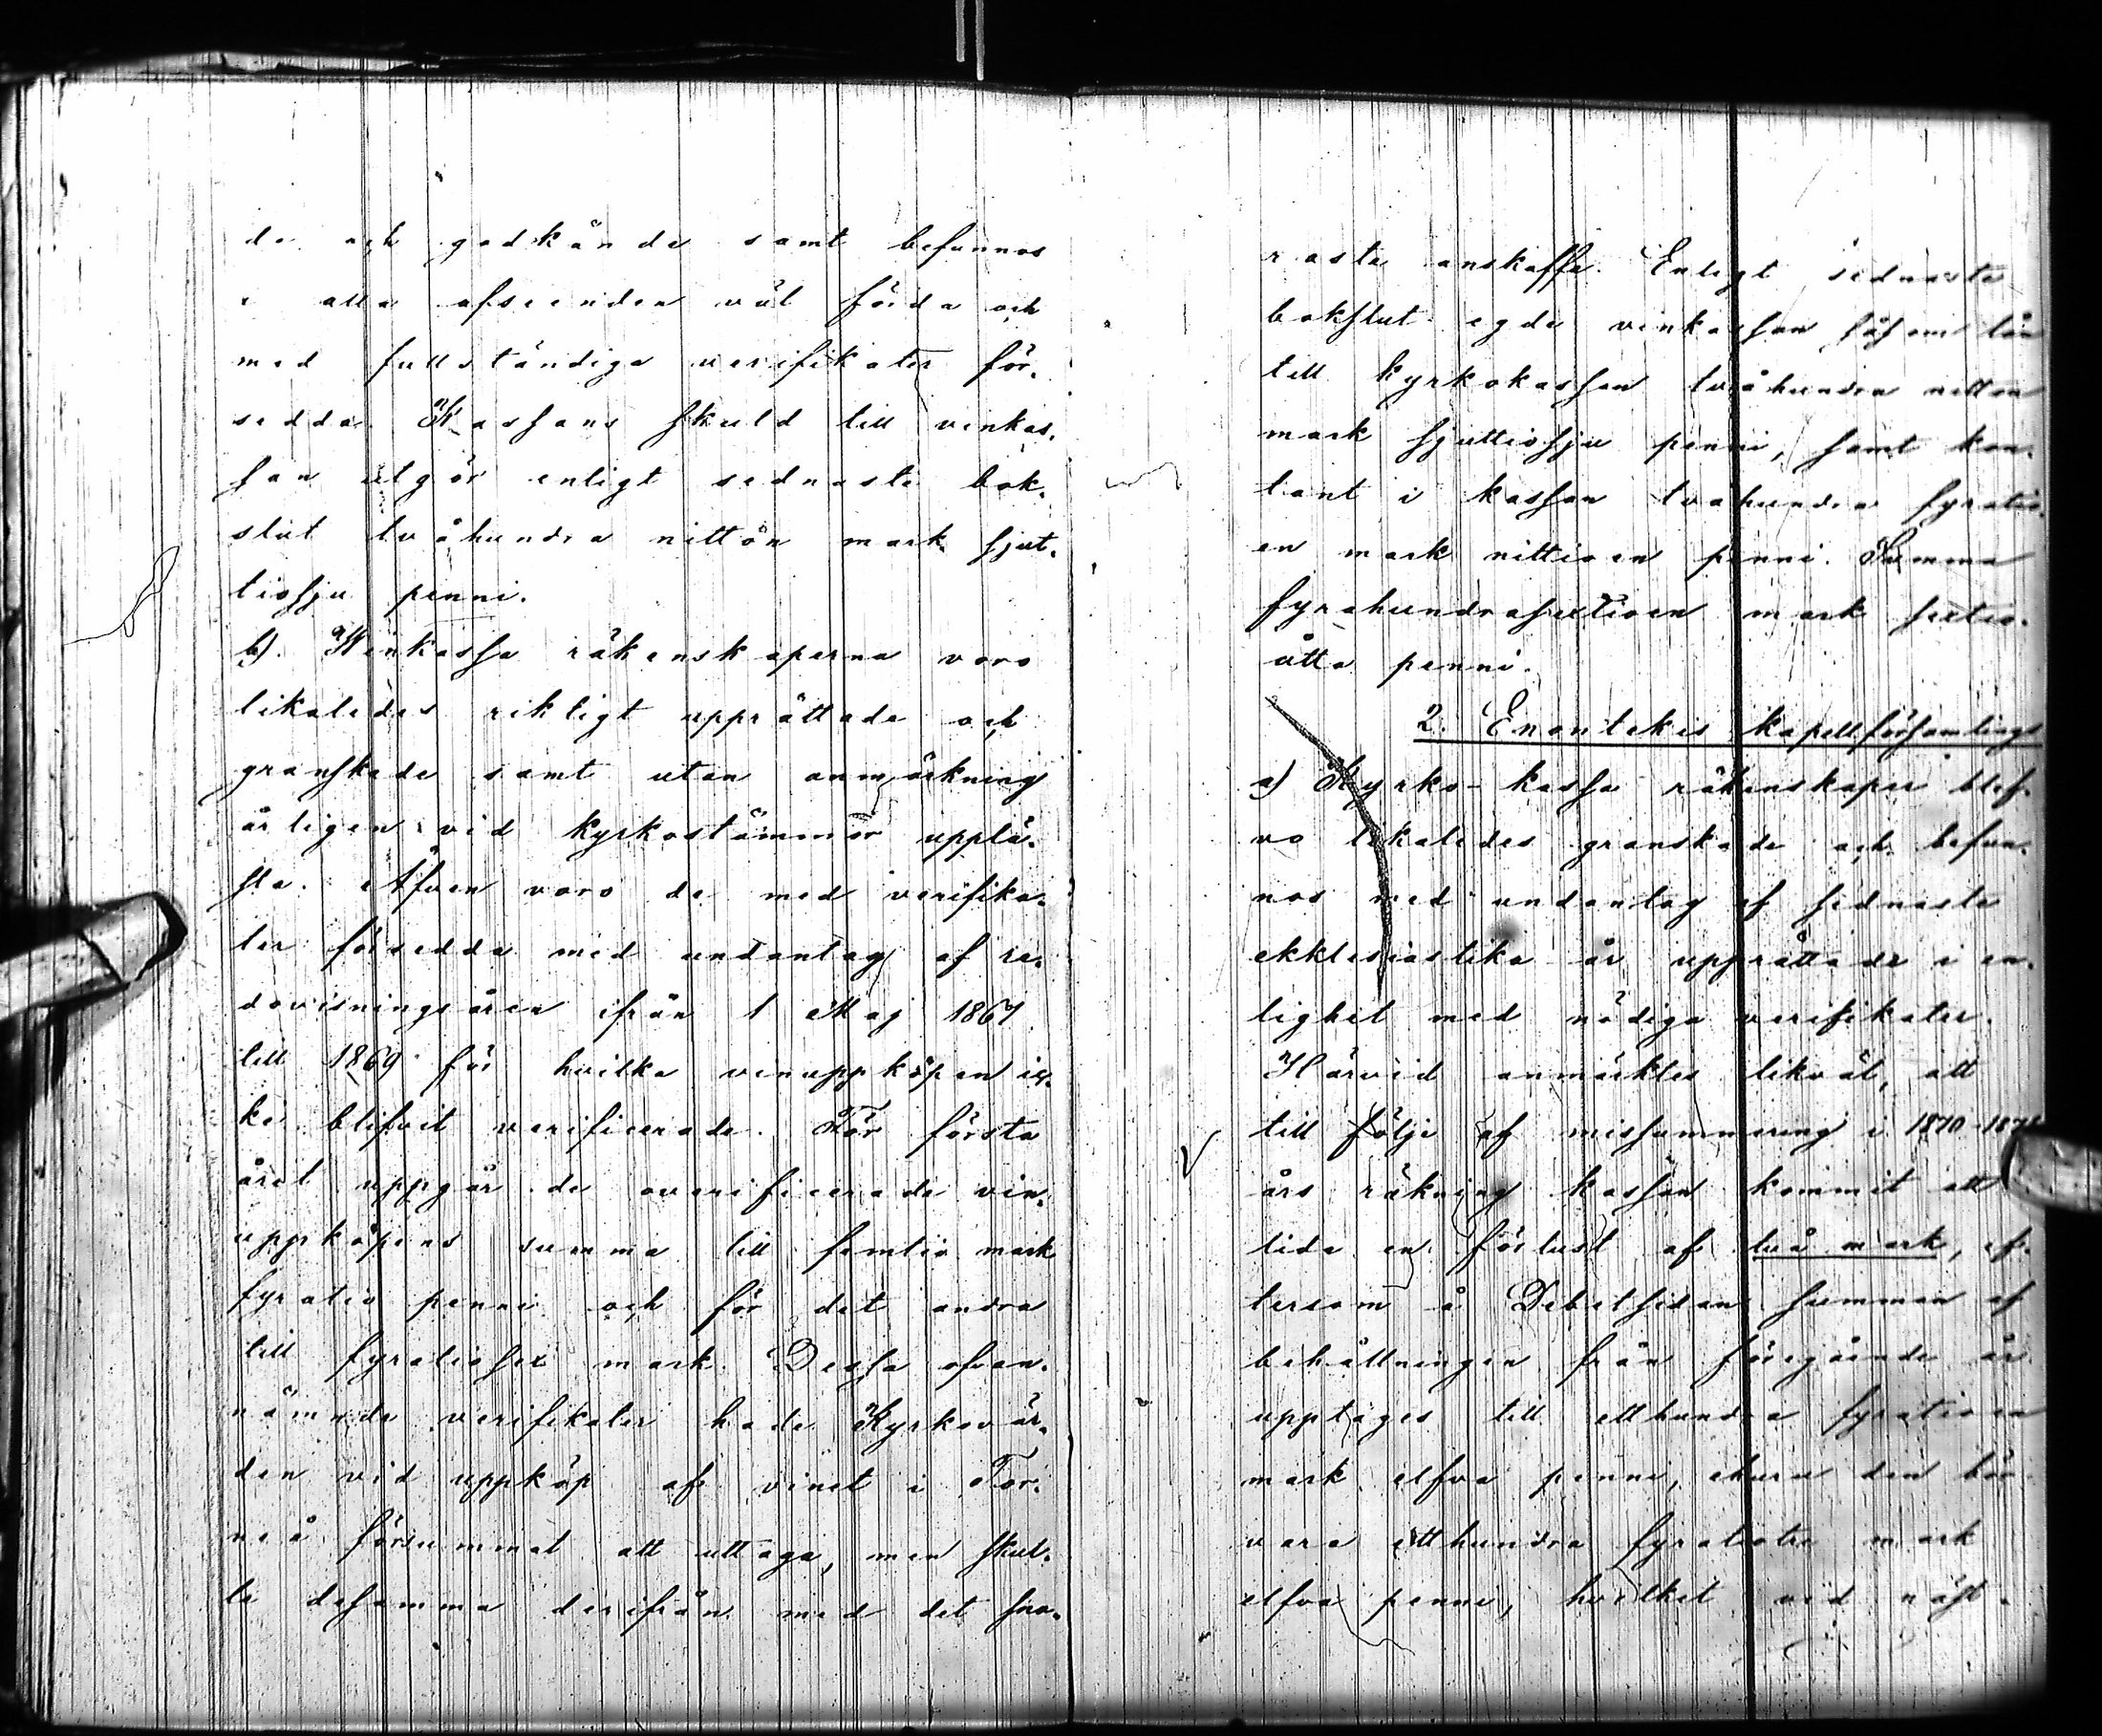 de och godkände samt befunnos
i alla afseenden väl förda och
med fullständiga verifikater för-
sedda. Kassans skuld till vinkas-
san utgör enligt sednaste bok-
slut tvåhundra nittön mark sjut-
tiosju penni.
b). Winkassa räkenskaperna voro
likaledes riktigt upprättade och
granskade samt utan anmärkning
årligen vid kyrkostämmor upplä-
sta. Äfven voro de med verifika-
ter försedda med undantag af re-
dovisningsåren ifrån 1 Maj 1867
till 1869 för hvilka vinuppköpen ic-
ke blifvit verificerade. För första
året uppgår de overificerade vin-
uppköpens summa till femtio mark
fyratio penni och för det andra
till fyratiosex mark. Dessa ofvan-
nämnde verifikater hade Kyrkovär-
den vid uppköp af vinet i Tor-
neå försummat att uttaga, men skul-
le desamma derifrån med det sna-
raste anskaffa. Enligt sednaste
bokslut egde vinkassan såsom lån
till kyrkokassan tvåhundra nitton
mark sjuttiosju penni, samt kon-
tant i kassan tvåhundra fyratio-
en mark nittioen penni. Summa
fyrahundrasextioen mark sextio-
åtta penni.
2. Enontekis kapellförsamlings
a) Kyrko-kassa räkenskaper blef-
vo likaledes granskade och befun-
nos med undantag af sednaste
ekklesiastika år upprättade i en-
lighet med nödiga verifikater.
Härvid anmärktes likväl, att
till följe af missummering i 1870-1871
års räkning kassan kommit att
lida en förlust af två mark, ef-
tersom å Debetsidan summan af
behållningen från föregående år
upptages till etthundra fyratioen
mark elfva penni, ehuru den bör
vara etthundra fyratiotre mark
elfva penni, hvilket vid näst-